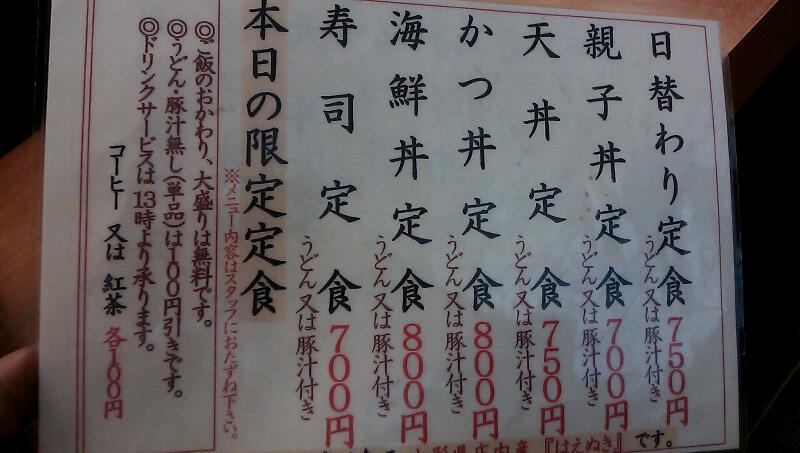 日替わり定食 750円
うどん又は豚汁付き
親子丼定食 700円
うどん又は豚汁付き
天丼定食 750円
うどん又は豚汁付き
かつ丼定食 800円
うどん又は豚汁付き
海鮮丼定食 800円
うどん又は豚汁付き
寿司定食 700円
うどん又は豚汁付き
本日の限定定食
※メニュー内容はスタッフにおたずね下さい。
◎ご飯のおかわり、大盛りは無料です。
◎うどん・豚汁無し(単品)は100円引きです。
◎ドリンクサービスは13時より承ります。
コーヒー 又は 紅茶 各100円
『はえぬき』です。